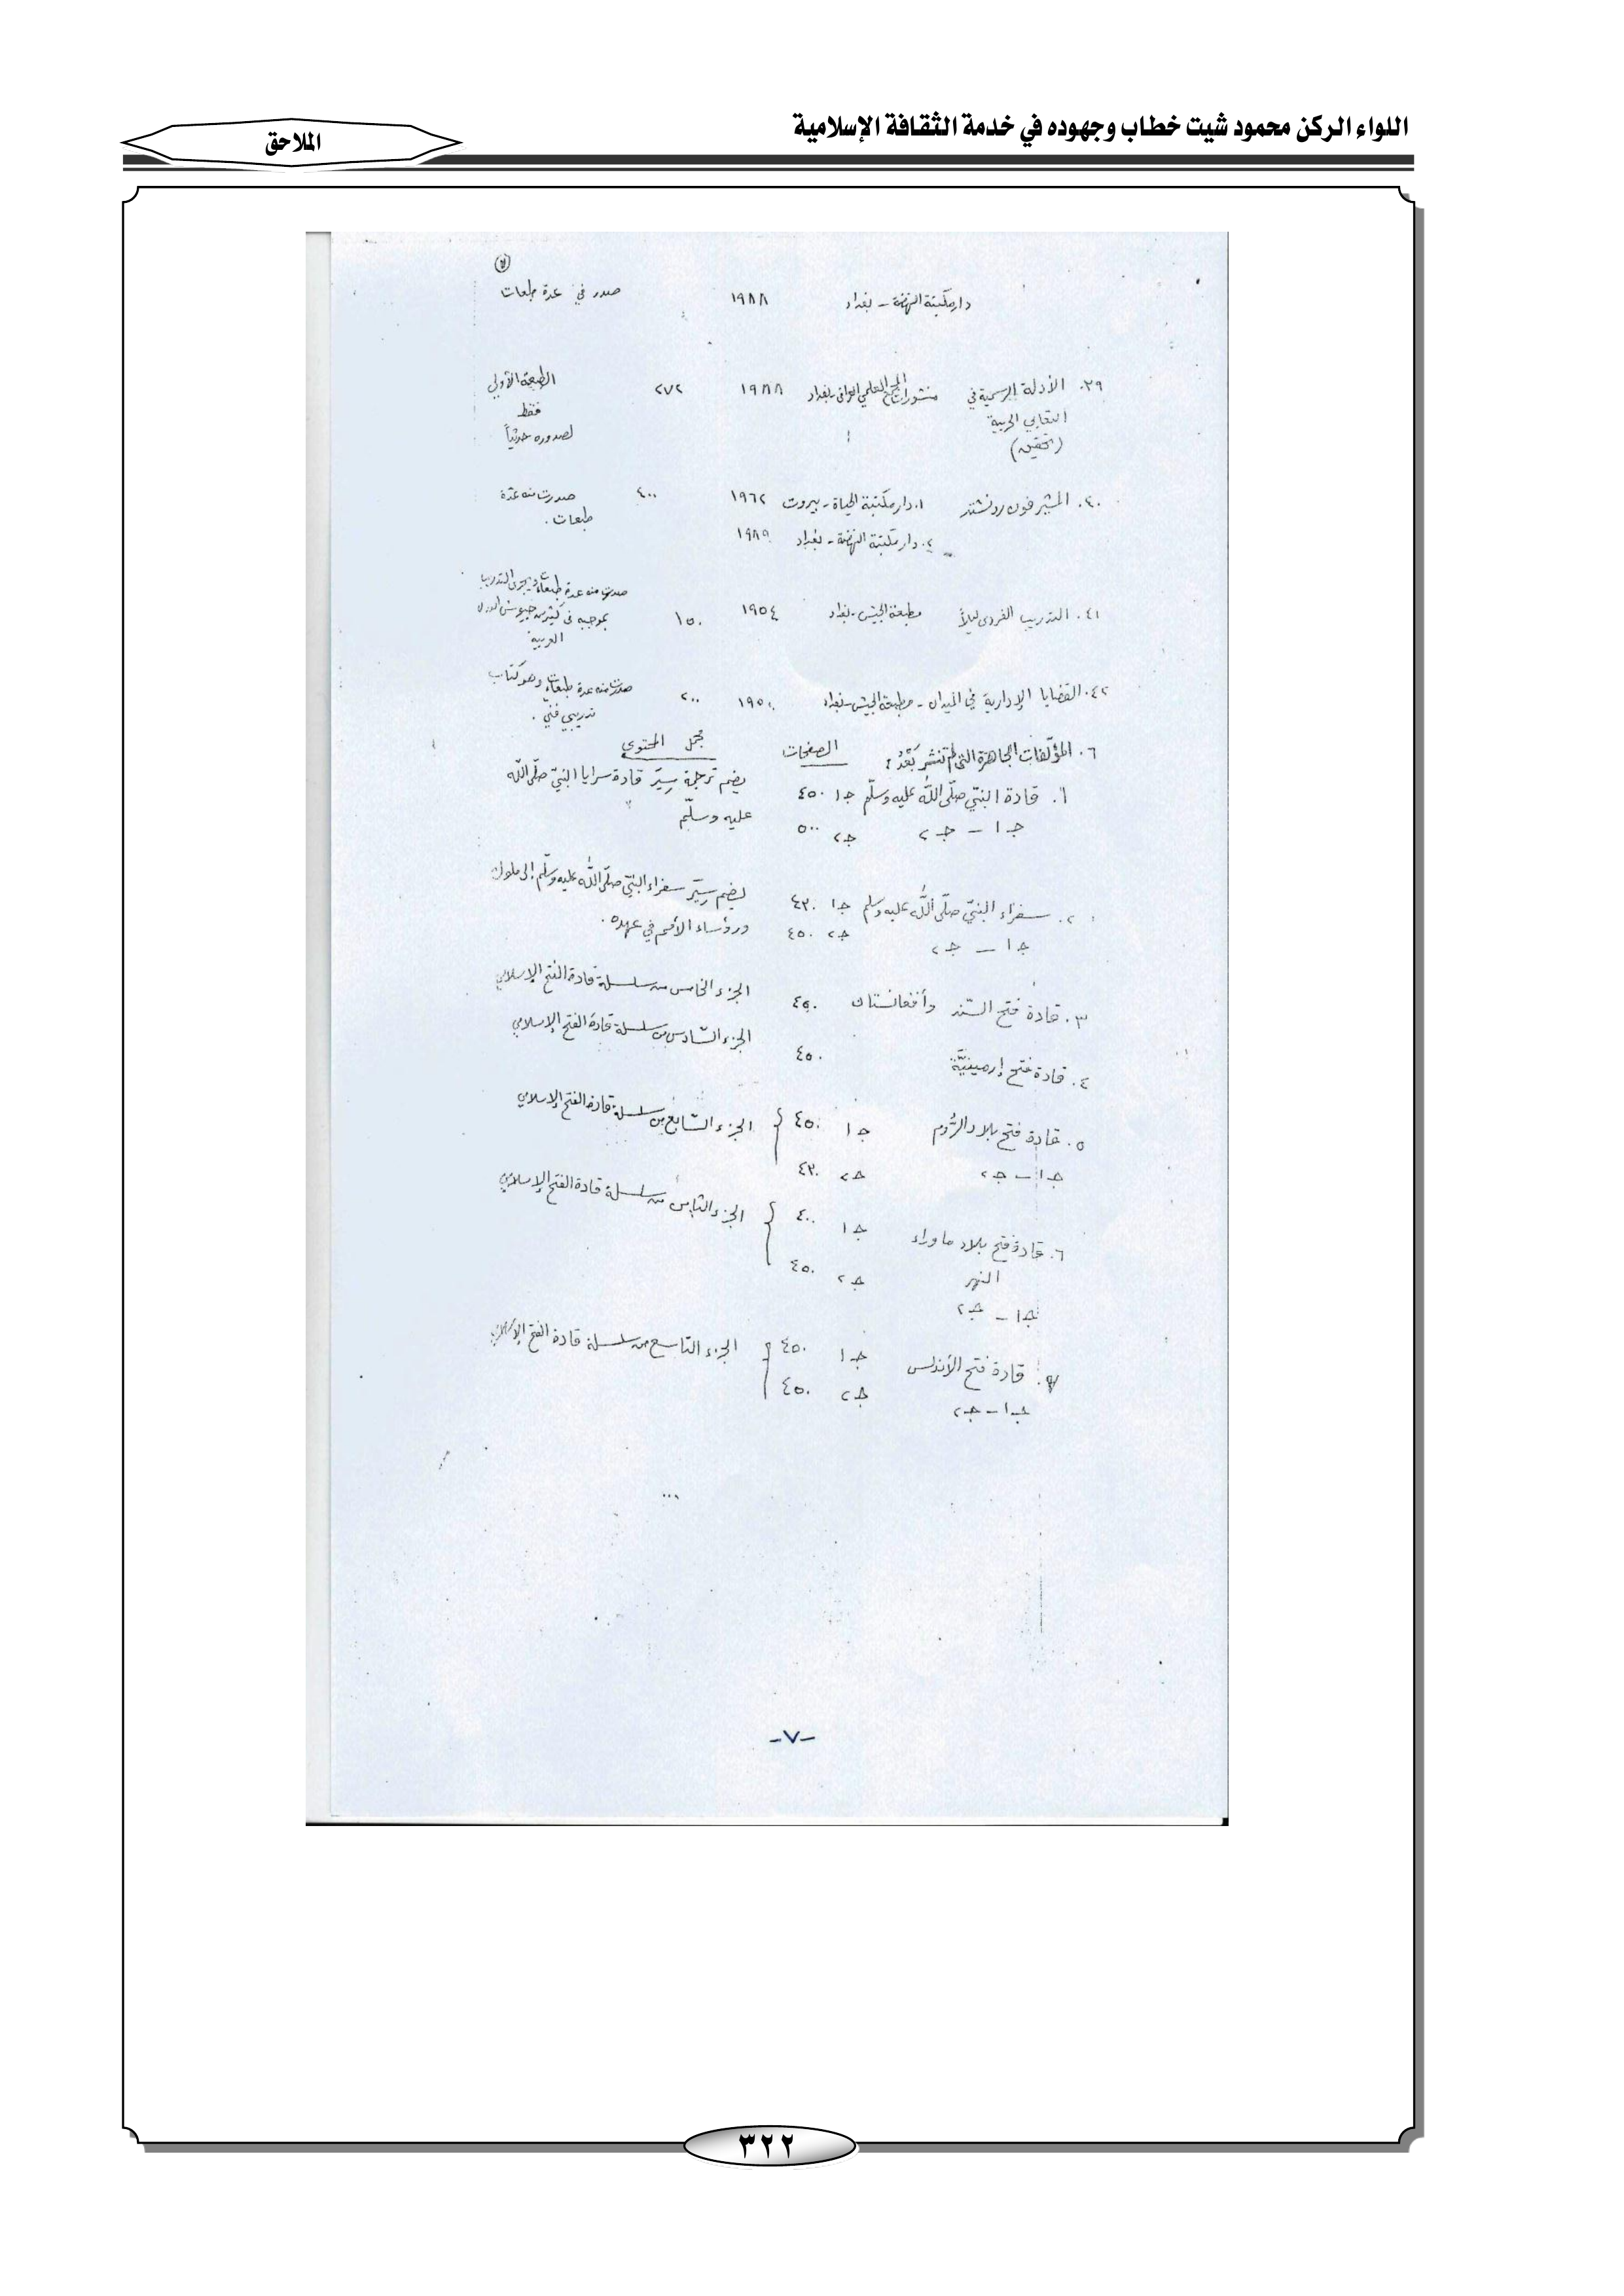 اللواء الركن محمود شيت خطاب وجهوده في خدمة الثقافة الإسلامية
الملاحق
دار مكتبة النهضة - بغداد ١٩٨٨ صدر في عدة طبعات
٣٩. الأدلة الرسمية في منشورات المجمع العلمي العراقي - بغداد ١٩٨٨ ٢٧٢ الطبعة الأولى
التعابي الحربية فقط
(تحقيق) لصدوره حديثاً
٤٠. المشير فون رونشتد ١. دار مكتبة الحياة - بيروت ١٩٦٢ ٤٠٠ صدرت منه عدّة
٢. دار مكتبة النهضة - بغداد ١٩٨٩ طبعات.
٤١. التدريب الفردي ليلاً مطبعة الجيش - بغداد ١٩٥٤ ١٥٠ صدرت منه عدة طبعات ويجري التدريب
بموجبه في كثير من جيوش الدول
العربية
٤٢. القضايا الإدارية في الميدان - مطبعة الجيش - بغداد ١٩٥٠ ٢٠٠ صدرت منه عدة طبعات وهو كتاب
تدريبي فني.
٦. المؤلّفات الجاهزة التي لم تنشر بَعْدُ: الصفحات مجمل المحتوى
١. قادة النبيّ صلّى اللّه عليه وسلّم جـ١ ٤٥٠ يضم ترجمة سِيَر قادة سرايا النبيّ صلّى اللّه
جـ١ - جـ٢ جـ٢ ٥٠٠ عليه وسلّم
٢. سفراء النبيّ صلّى اللّه عليه وسلم جـ١ ٤٣٠ يضم سِيَر سفراء النبيّ صلّى اللّه عليه وسلّم إلى ملوك
جـ١ - جـ٢ جـ٢ ٤٥٠ ورؤساء الأمم في عهده.
٣. قادة فتح السّند وأفغانستان ٤٥٠ الجزء الخامس من سلسلة قادة الفتح الإسلامي
٤. قادة فتح إرمينيَّة ٤٥٠ الجزء السّادس من سلسلة قادة الفتح الإسلامي
٥. قادة فتح بلاد الرُّوم جـ١ ٤٥٠ الجزء السّابع من سلسلة قادة الفتح الإسلامي
جـ١ - جـ٢ جـ٢ ٤٣٠
٦. قادة فتح بلاد ما وراء جـ١ ٤٠٠ الجزء الثامن من سلسلة قادة الفتح الإسلامي
النهر جـ٢ ٤٥٠
جـ١ - جـ٢
٧. قادة فتح الأندلس جـ١ ٤٥٠ الجزء التاسع من سلسلة قادة الفتح الإسلامي
جـ١ - جـ٢ جـ٢ ٤٥٠
...
-٧-
٣٢٢